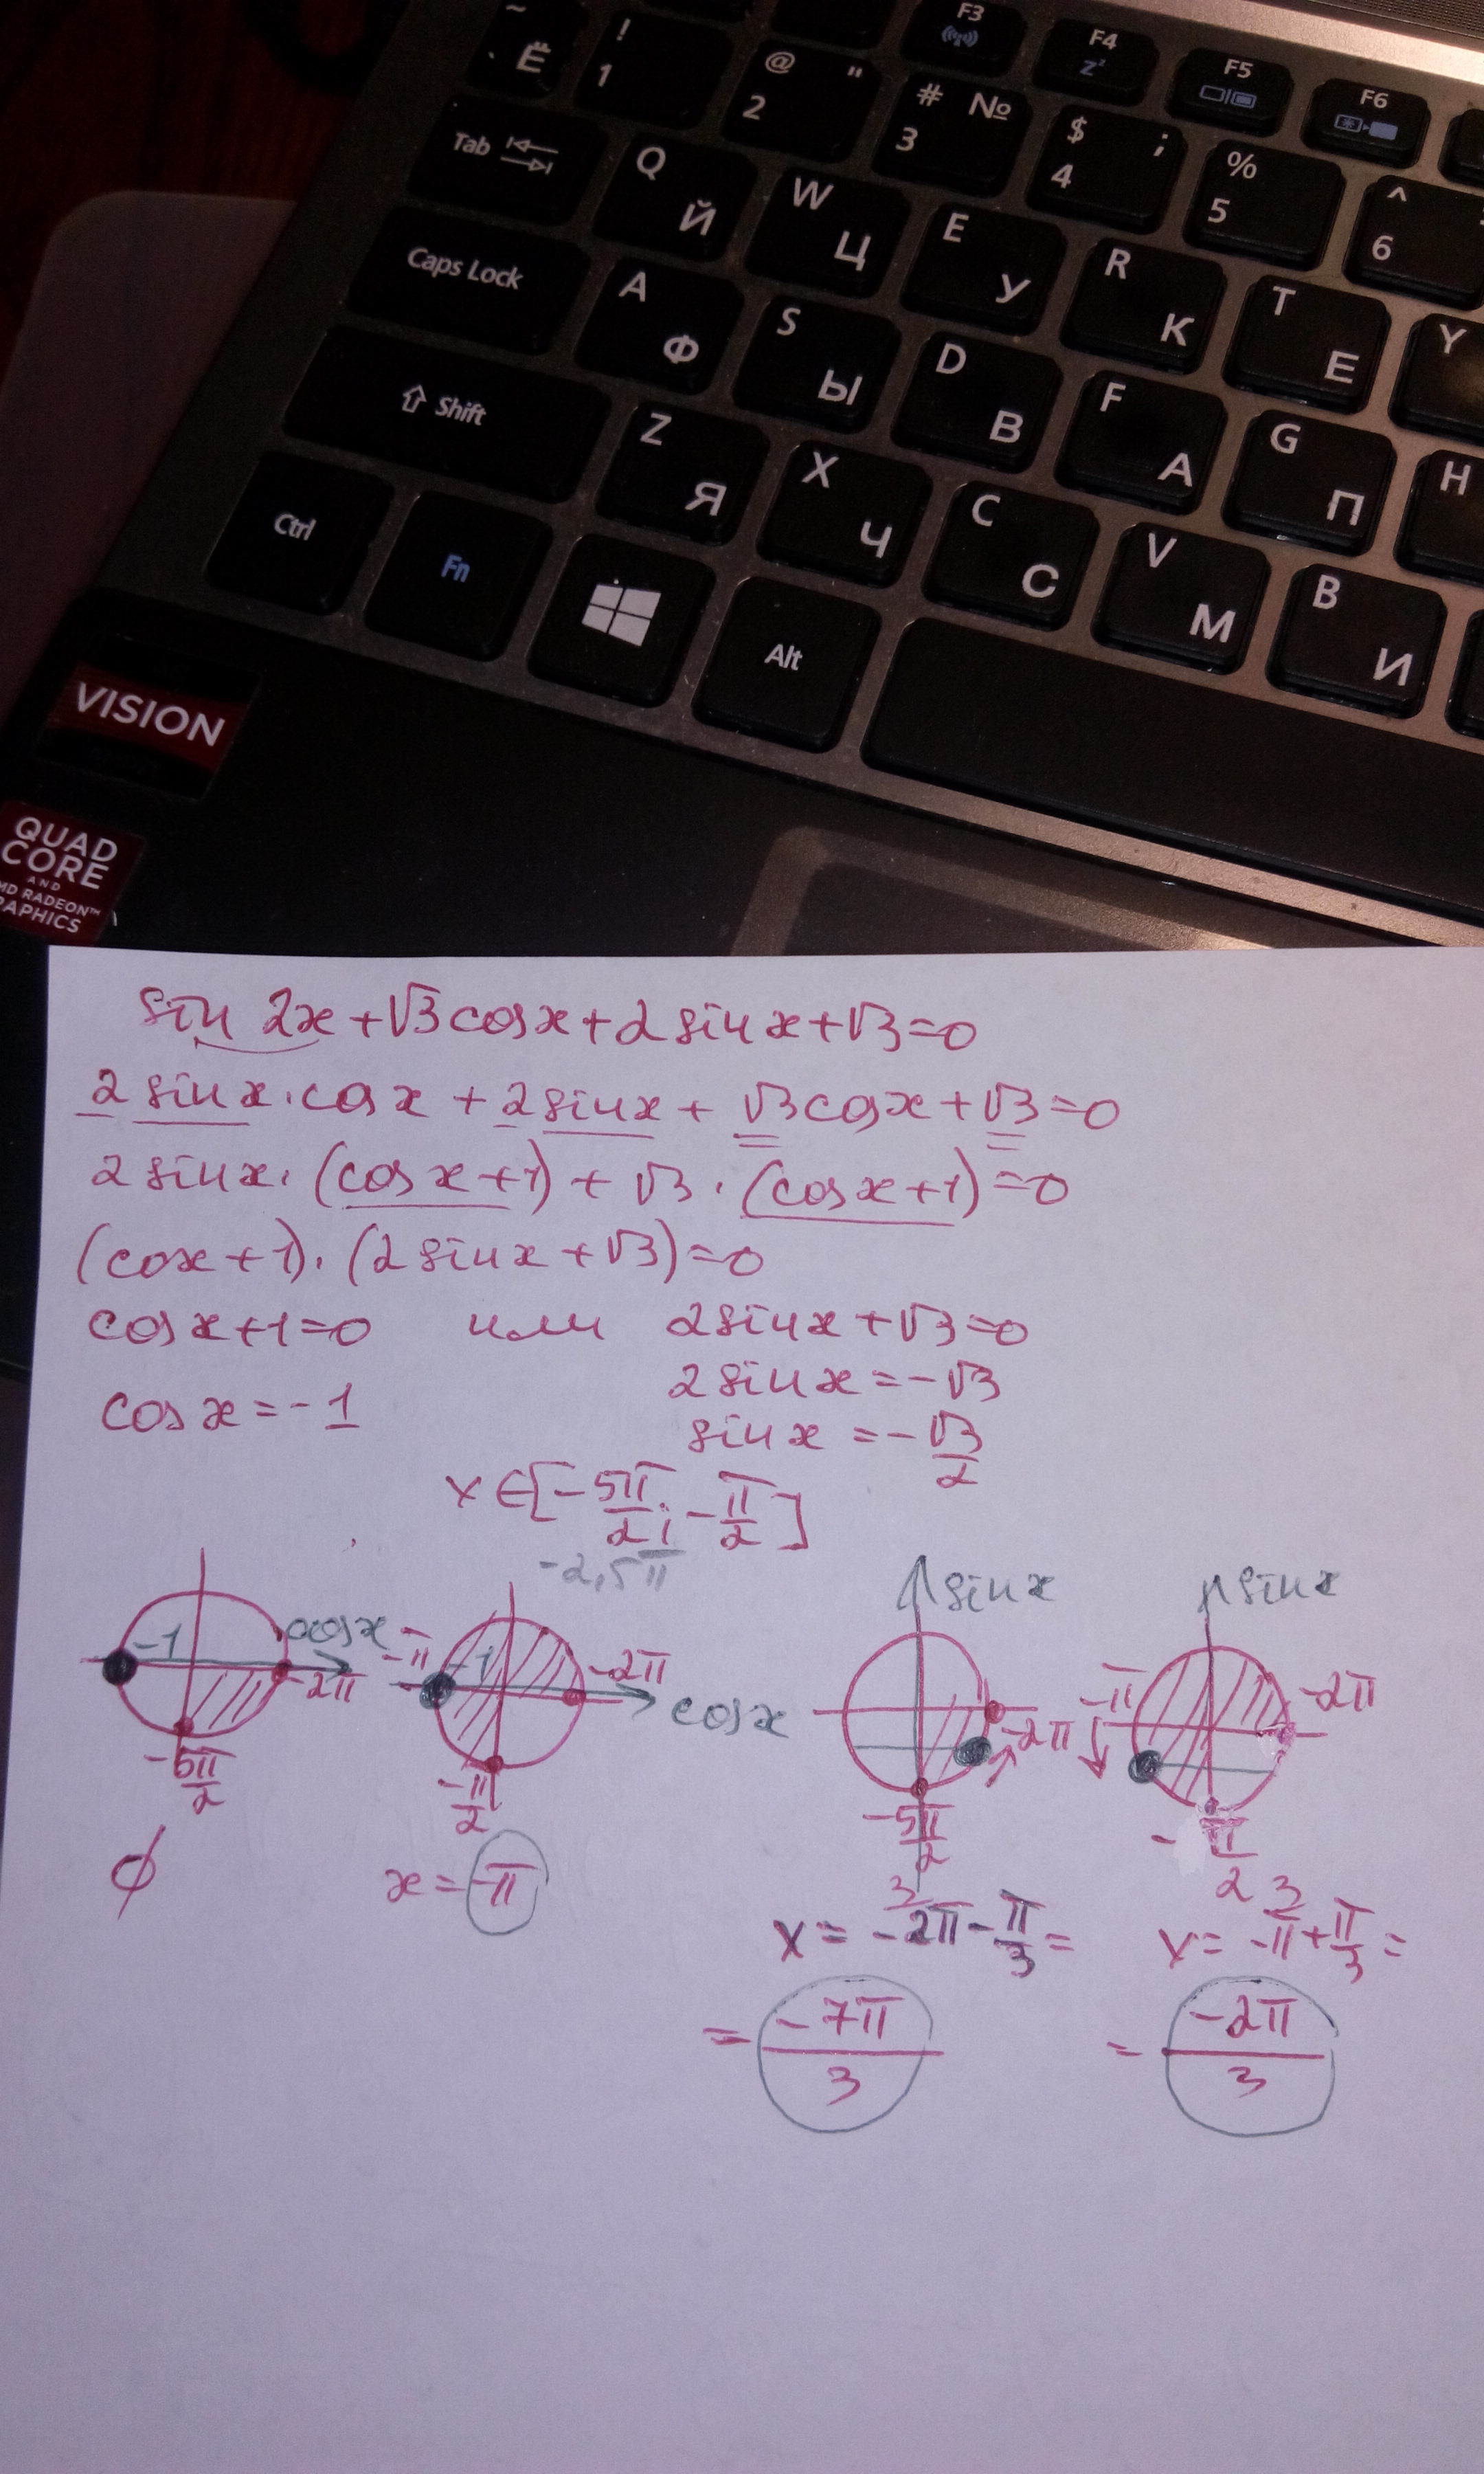 ~
` Ё
! 1
@ " 2
# № 3
$ ; 4
% 5
^ 6
F3
F4 Zz
F5
F6
Tab
Q Й
W Ц
E У
R К
T Е
Y
Caps Lock
A Ф
S Ы
D В
F А
G П
H
Shift
Z Я
X Ч
C С
V М
B И
Ctrl
Fn
Alt
VISION
QUAD
CORE
AND
RADEON™
sin 2x+√3cosx+2sinx+√3=0
2sinx·cosx+2sinx+√3cosx+√3=0
2sinx·(cosx+1)+√3·(cosx+1)=0
(cosx+1)·(2sinx+√3)=0
cosx+1=0 или 2sinx+√3=0
cosx=-1 2sinx=-√3
sinx=-√3/2
x∈[-5π/2;-π/2]
-2,5π
-1 cosx -2π -5π/2
-π -1 -2π cosx -π/2
sinx -2π -5π/2
sinx -π -2π -π/2
∅ x=-π
x=-2π-π/3= x=-π+π/3=
=-7π/3 =-2π/3